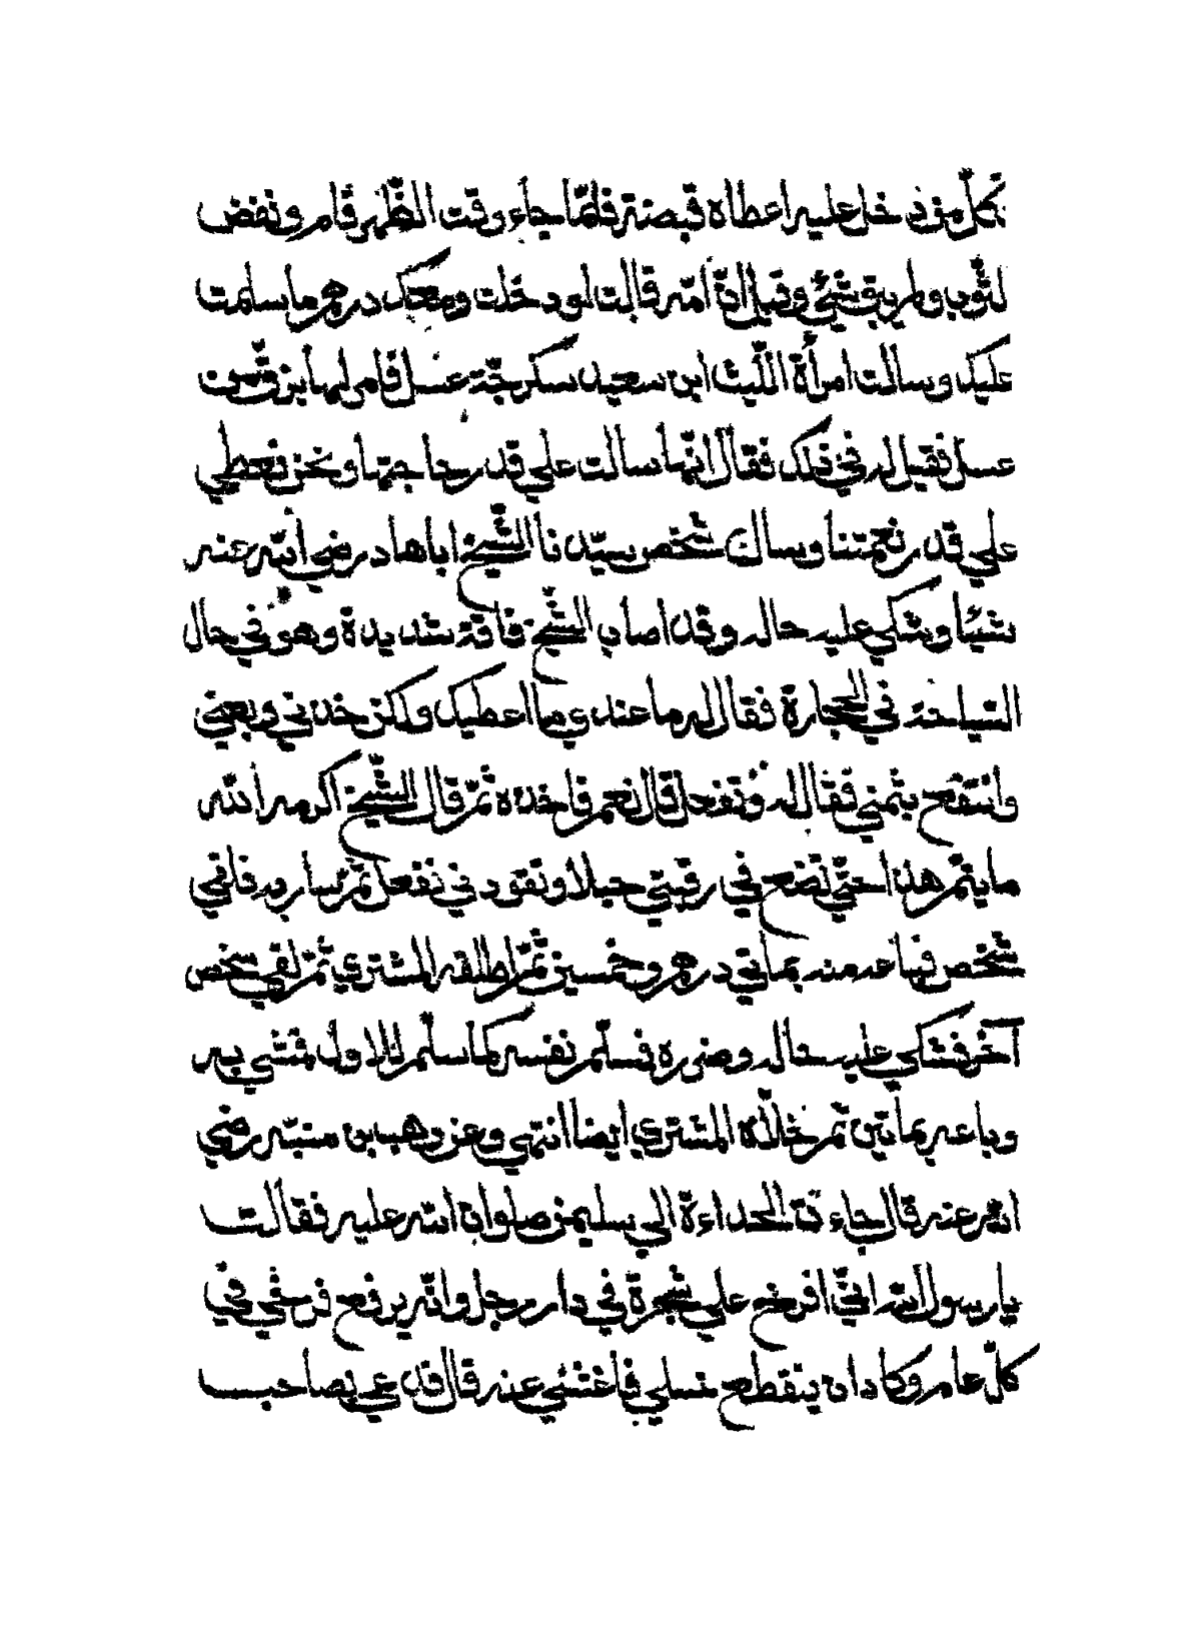 فكلّ من دخل عليه اعطاه قبضة فلمّا جاء وقت الظّهر قام ونفض
لثّوب ولم يبق شيّ وقيل انّ امّه قالت لو دخلت ومعك درهم ما سلمت
عليك وسالت امرأة اللّيث ابن سعيد سكرجّة عسل فامر لها بزقّ من
عسل فقيل له في ذلك فقال انّها سالت علي قدر حاجتها ونحن نعطي
علي قدر نعمتنا وسال شخص سيّدنا الشّيخ اباها در رضي الله عنه
شيئا وشكي عليه حاله وقد اصاب الشّيخ فاقة شديدة وهو في حال
السّياحة في الحجارة فقال له ما عندي ما اعطيك ولكن خذني وبعني
وانتفع بثمني فقال له وتفعل قال نعم فاخذه ثمّ قال الشّيخ اكرمه الله
ما يتمّ هذا حتّي تضع في رقبتي حبلا وتقودني نفعل ثمّ سار به فلقي
شخص فباعه منه بمائتي درهم وخمسين ثمّ اطلقه المشتري ثمّ لقي شخص
آخر فشكي عليه حاله وضره فسلّم نفسه كما سلّم للاول فمشي به
وباعه بمأتين ثمّ خلاّه المشتري ايضا انتهي وعن وهب بن منبّه رضي
الله عنه قال جاءت الحداءة الي سليمن صلوات الله عليه فقالت
يا رسول الله انّي افرخ علي شجرة في دار رجل وانّه يرفع فرخي في
كلّ عام وكاد ان ينقطع نسلي فاغثني عنه قال قد علي بصاحب